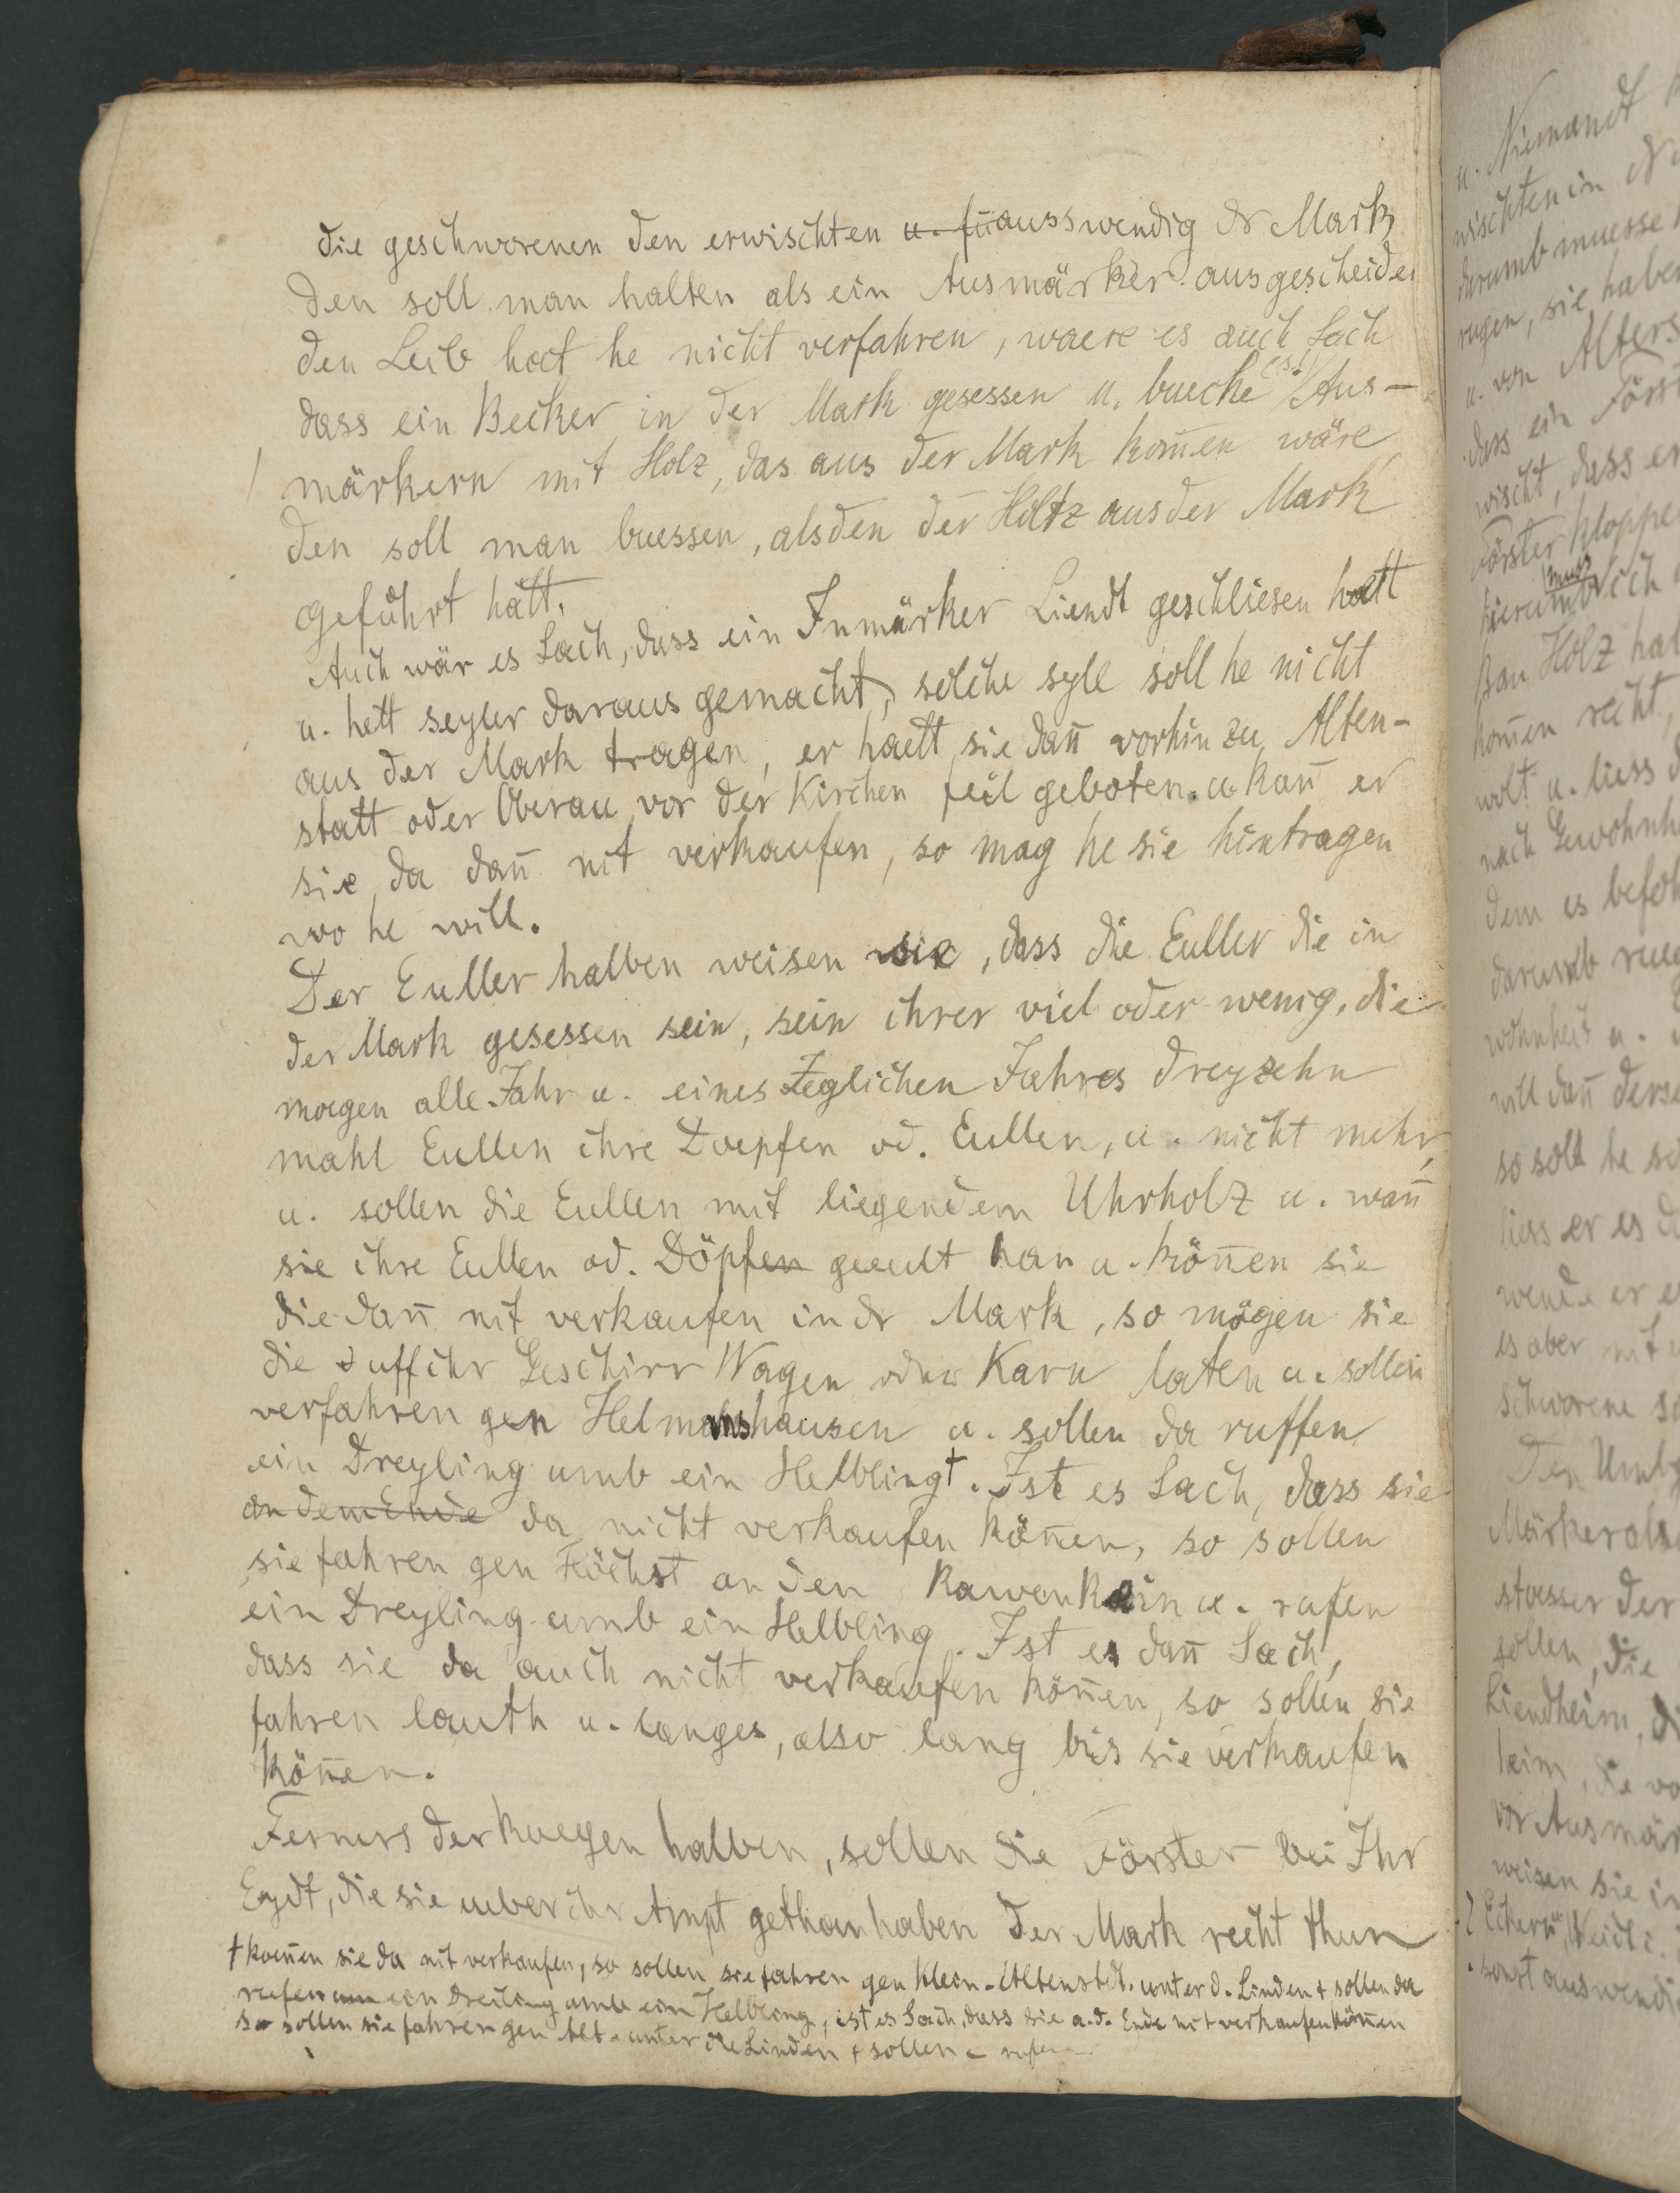 die geschworenen den erwischten u. fü ausswendig dr Mark
den soll man halten als ein Ausmärker ausgescheiden
den Leib hat he nicht verfahren, waere es auch Sach
dass ein Becker in der Mark gesessen u. buecke es! Aus-
märkern mit Holz, das aus der Mark kom̄en wäre
den soll man buessen, als den der Holtz aus der Mark
geführt hätt.
Auch wär es Sach, dass ein Inmärker Liendt geschliesen hatt
u. hett seyler daraus gemacht, solche syle soll he nicht
aus der Mark tragen, er haett sie dan̄ vorhin zu Alten-
statt oder Oberau vor der Kirchen feil geboten. u. kan̄ er
sie da dan̄ nit verkaufen, so mag he sie hintragen
wo he will.
Der Euller halben weisen sie, dass die Euller die in
der Mark gesessen sein, sein ihrer viel oder wenig, die
moegen alle Jahr u. eines Jeglichen Jahres dreyzehn
mahl Eullen ihre Doepfen od. Eullen, u. nicht mehr,
u. sollen die Eullen mit liegendem Uhrholz u. wan̄
sie ihre Eullen od. Döpfen geeult han u. kön̄en sie
die dan̄ nit verkaufen in dr Mark, so mögen sie
die uff ihr Geschirr Wagen oder Karn laten u. sollen
verfahren gen Helmanshausen u. sollen da ruffen
ein Dreyling umb ein Helbling†. Ist es Sach, dass sie
an dem Ende da nicht verkaufen kön̄en, so sollen
sie fahren gen Höchst an den Kawenkain u. rufen
ein Dreyling umb ein Helbling. Ist es dan̄ Sach,
dass sie da auch nicht verkaufen kön̄en, so sollen sie
fahren lauth u. langes, also lang bis sie verkaufen
kön̄en.
Ferners der Ruegen halben, sollen die Förster bei Ihr
Eydt, die sie ueber ihr Ampt gethan haben der Mark recht thun
† koen̄en sie da nit verkaufen, so sollen sie fahren gen Klein-Altenstdt. unter d. Linden + sollen da
rufen um ein Dreiling umb ein Helbling, ist es Sach, dass sie a. d. Ende nit verkaufen kön̄en
so sollen sie fahren gen Alt. unter die Linden + sollen - rufen
u. Niemandt
wischten in
darumb muesse
rugen, sie haben
u. von Alters
dass ein Först
wischt, dass er
Förster kloppe
hierumb ich
Bau Holz hal
kom̄en recht,
wolt u. liess
nach Gewohnh
dem es befoh
darumb rueg
wohnheit u.
will dan̄ derse
so soll he
liess er es d
wende er e
es aber nit
schworene so
Den Umb
Märker als
stosser der
sollen, die
Liendheim, di
heim, die vo
vor Ausmär
weisen sie in
sonst auswendi